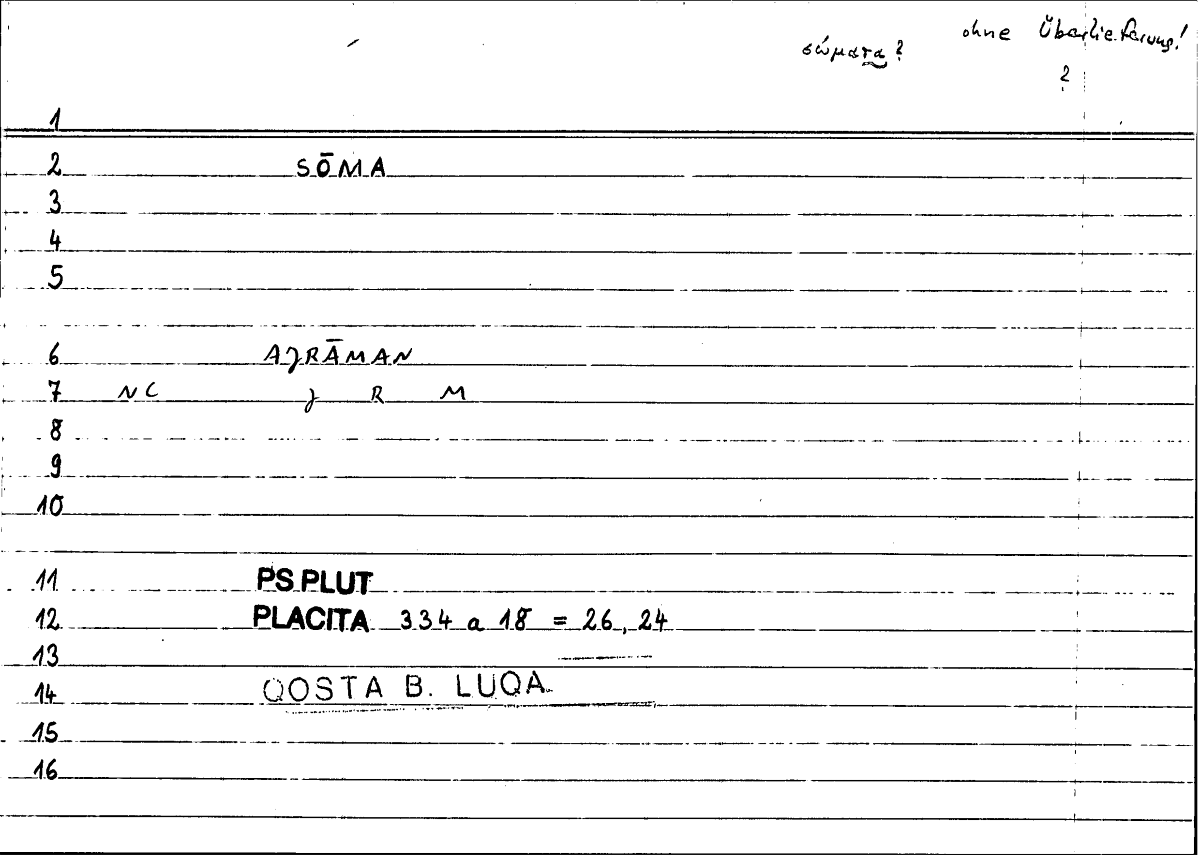 ohne Überlieferung!
σώματα?
?
1
2 SŌMA
3
4
5
6 AJRĀMAN
7 NC J R M
8
9
10
11 PS.PLUT
12 PLACITA 334 a 18 = 26, 24
13
14 QOSTA B. LUQA
15
16